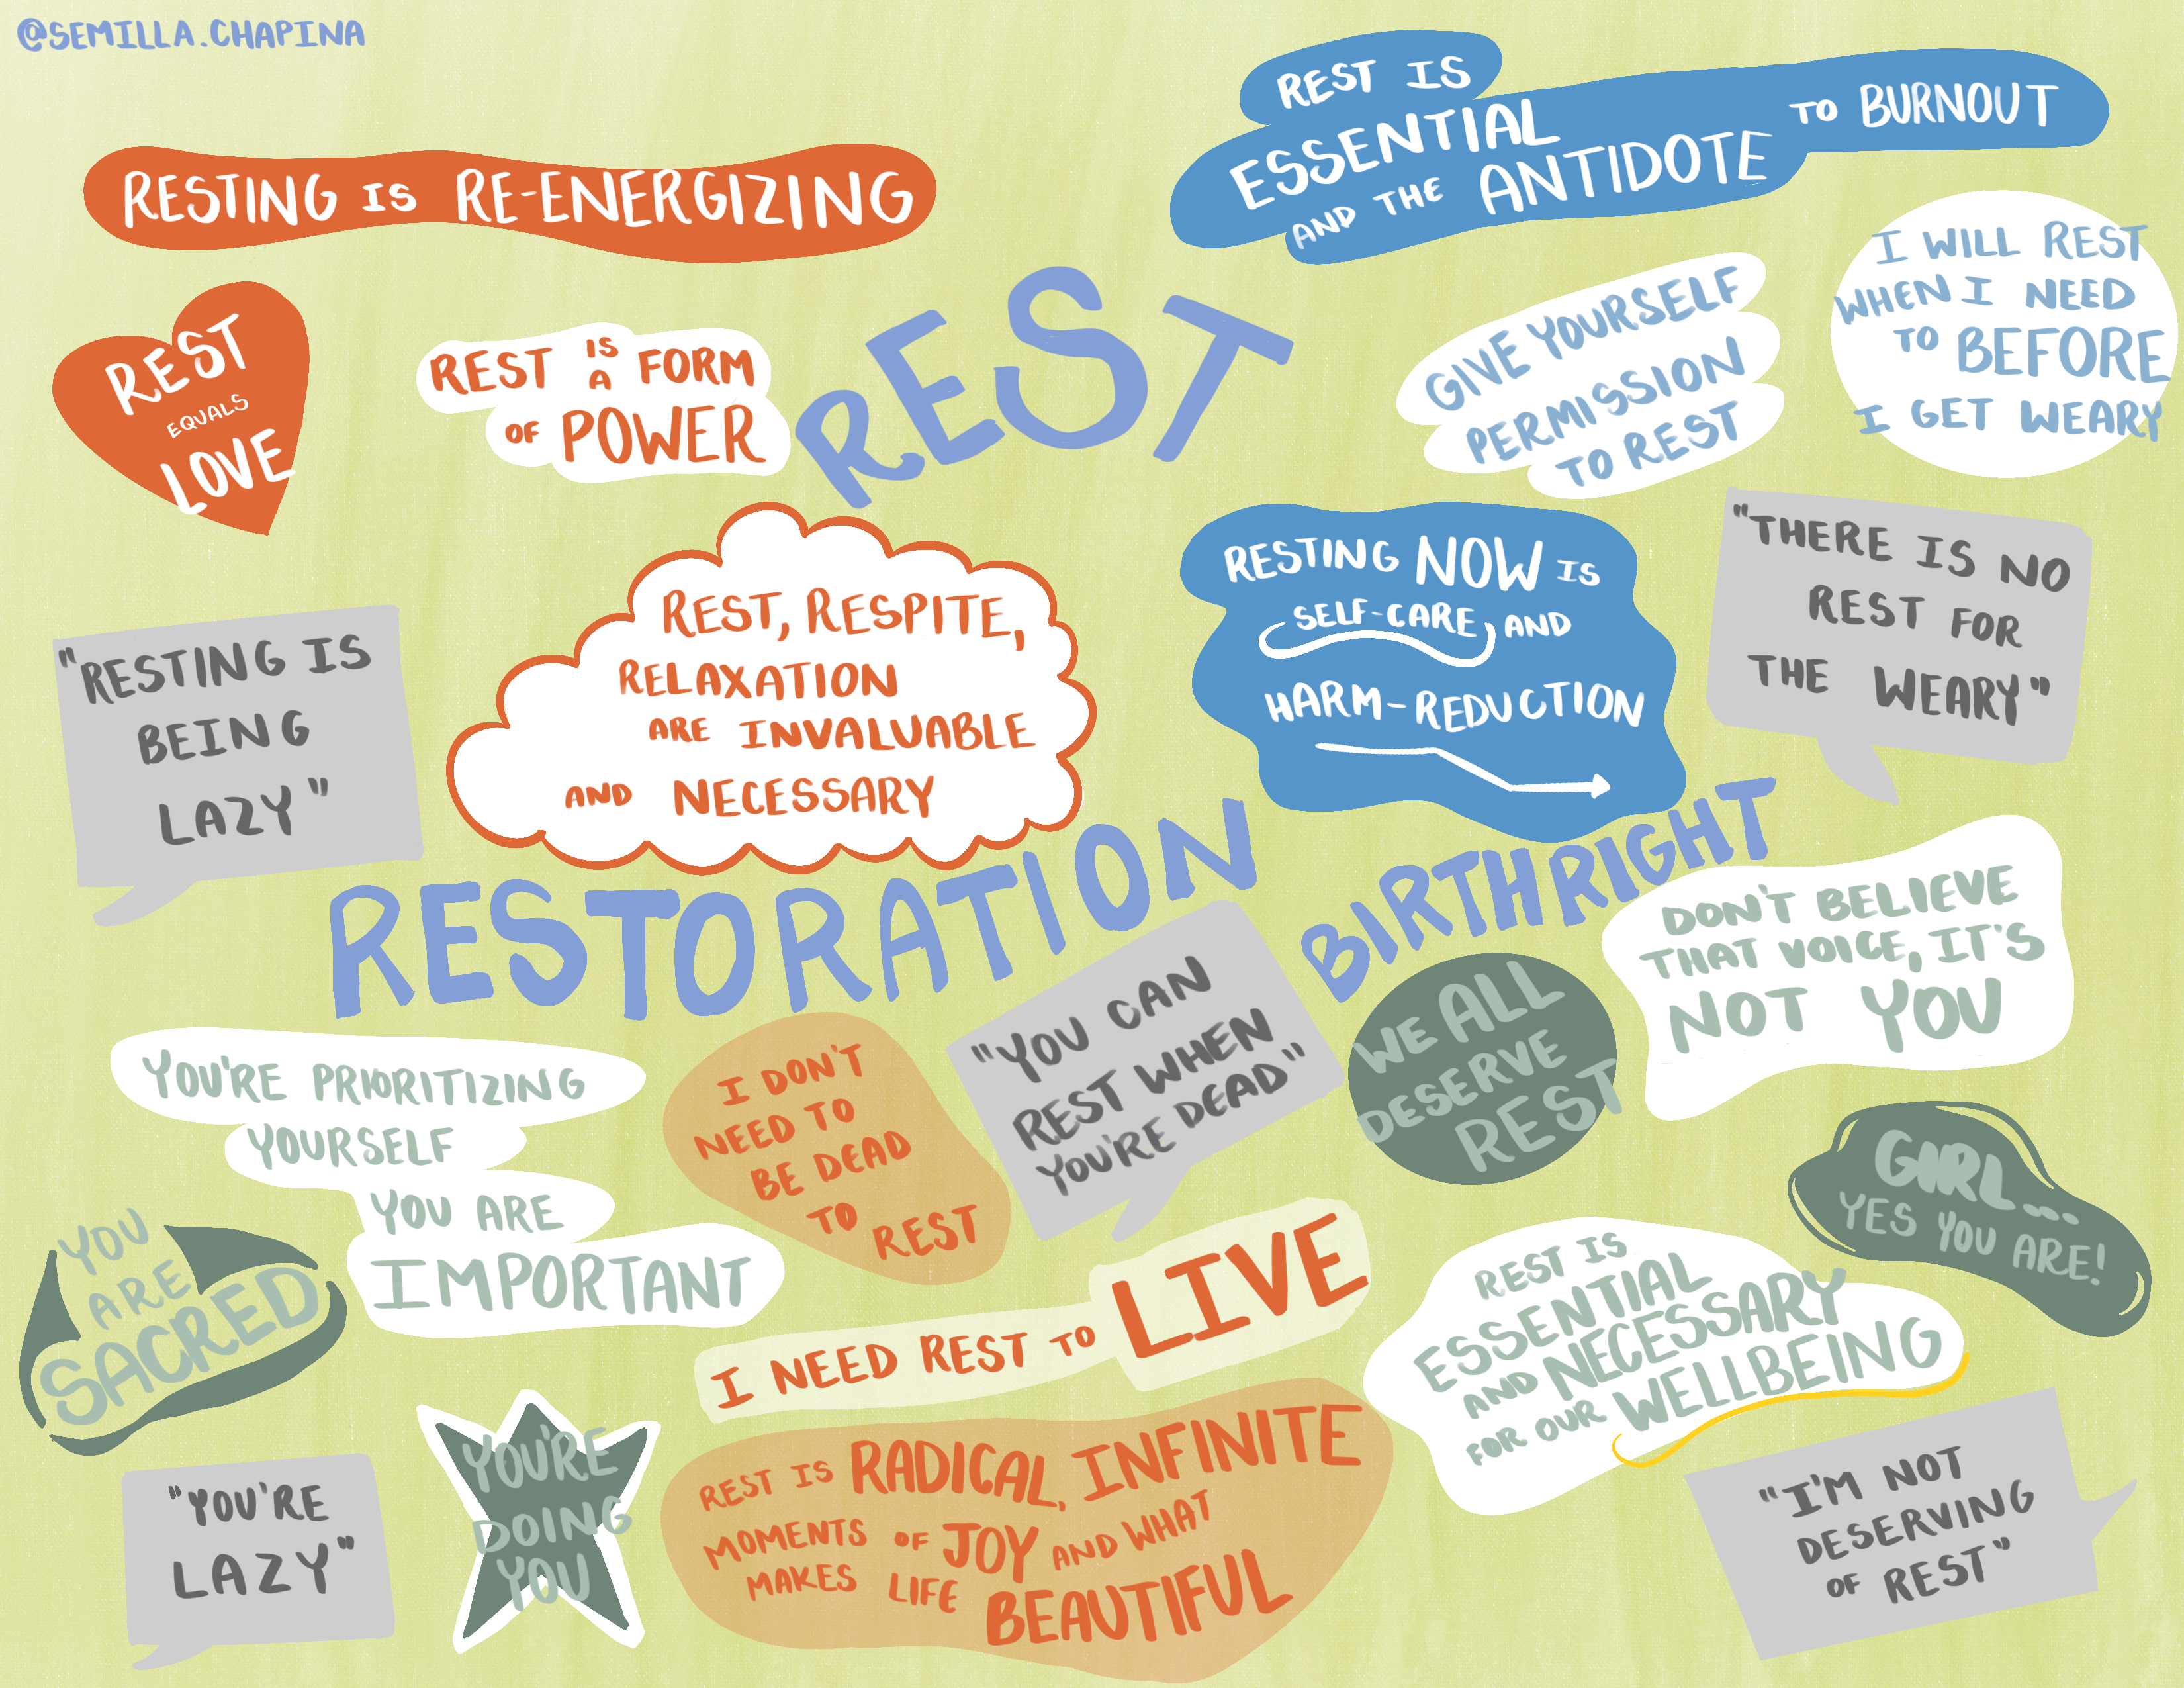 @SEMILLA.CHAPINA
REST IS
ESSENTIAL
AND THE ANTIDOTE
TO BURNOUT
RESTING IS RE-ENERGIZING
REST
EQUALS
LOVE
REST IS A FORM
OF POWER
REST
GIVE YOURSELF
PERMISSION
TO REST
I WILL REST
WHEN I NEED
TO BEFORE
I GET WEARY
"RESTING IS
BEING
LAZY"
REST, RESPITE,
RELAXATION
ARE INVALUABLE
AND NECESSARY
RESTING NOW IS
SELF-CARE AND
HARM-REDUCTION
"THERE IS NO
REST FOR
THE WEARY"
RESTORATION
BIRTHRIGHT
DON'T BELIEVE
THAT VOICE, IT'S
NOT YOU
YOU'RE PRIORITIZING
YOURSELF
YOU ARE
IMPORTANT
I DON'T
NEED TO
BE DEAD
TO REST
"YOU CAN
REST WHEN
YOU'RE DEAD"
WE ALL
DESERVE
REST
GIRL...
YES YOU ARE!
YOU
ARE
SACRED
I NEED REST TO LIVE
REST IS
ESSENTIAL
AND NECESSARY
FOR OUR WELLBEING
"YOU'RE
LAZY"
YOU'RE
DOING
YOU
REST IS RADICAL, INFINITE
MOMENTS OF JOY AND WHAT
MAKES LIFE
BEAUTIFUL
"I'M NOT
DESERVING
OF REST"